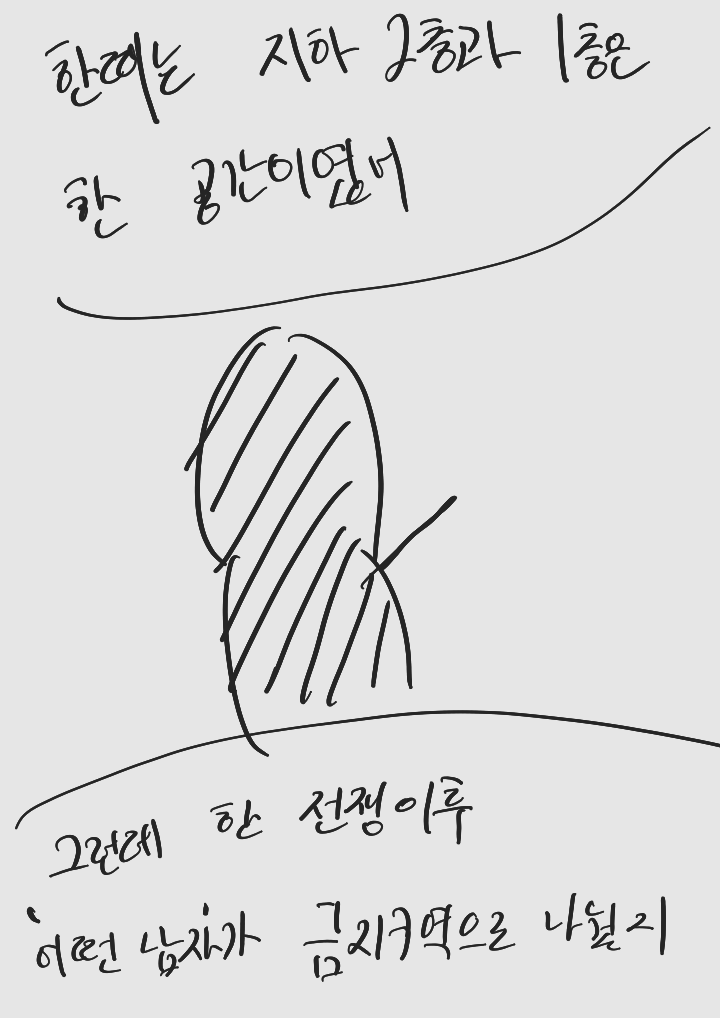 한때는 지하 2층과 1층은
한 공간이였어
그런데 한 전쟁이후
어떤 남자가 금지구역으로 나눴지